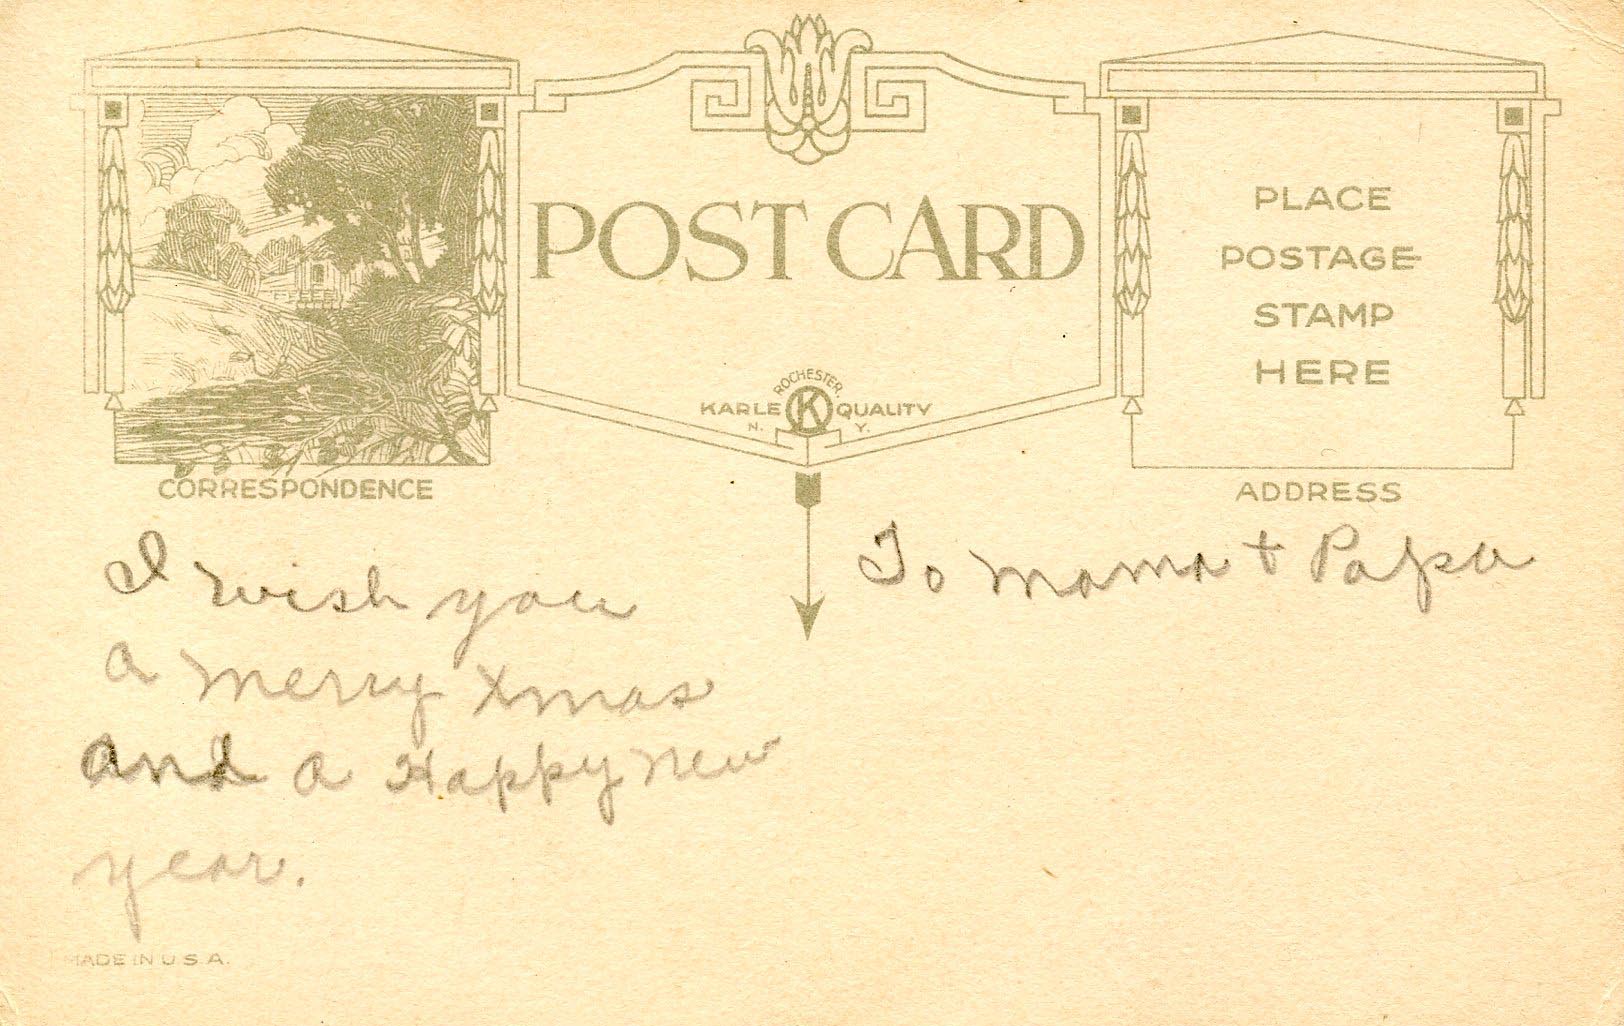 POST CARD
PLACE
POSTAGE
STAMP
HERE
ROCHESTER
KARLE K QUALITY
N. Y.
CORRESPONDENCE
ADDRESS
I wish you
a merry Xmas
and a Happy new
year.
To Mama + Papa
MADE IN U.S.A.